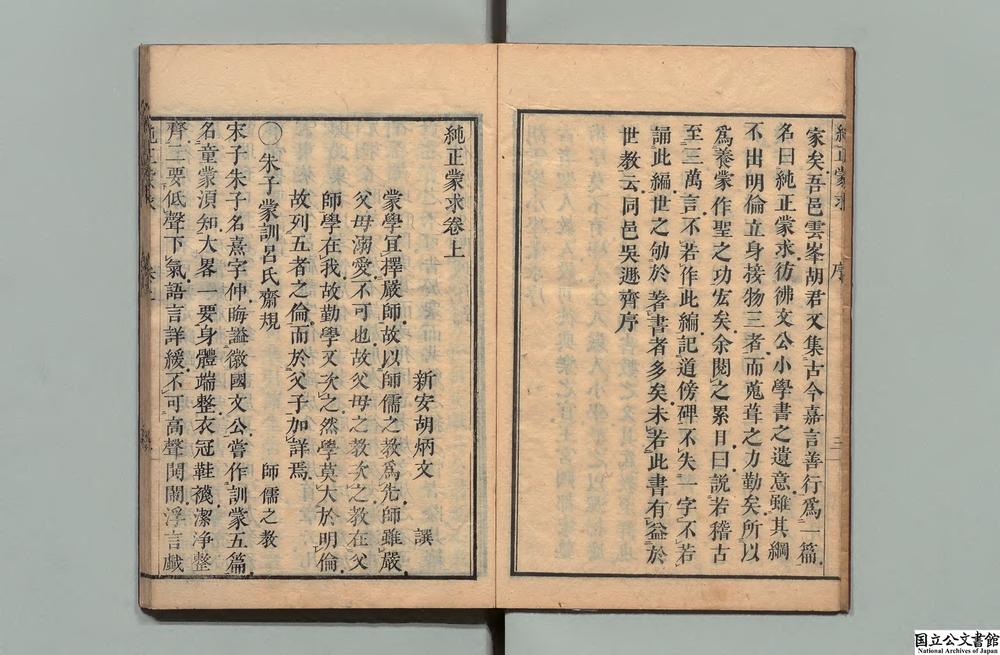 家矣吾邑雲峯胡君又集古今嘉言善行爲一篇
名曰純正蒙求彷彿文公小學書之遺意雖其綱
不出明倫立身接物三者而蒐葺之力勤矣所以
爲養蒙作聖之功宏矣余閱之累日曰説若稽古
至三萬言不若作此編記道傍碑不失一字不若
誦此編世之劬於著書者多矣未若此書有益於
世教云同邑吳遜齊序
純正蒙求 序
純正蒙求卷上
新安胡炳文 譔
蒙學宜擇嚴師故以師儒之教爲先師雖嚴
父母溺愛不可也故父母之教次之教在父
師學在我故勤學又次之然學莫大於明倫
故列五者之倫而於父子加詳焉
〇朱子蒙訓呂氏齋規 師儒之教
宋子朱子名熹字仲晦謚徽國文公嘗作訓蒙五篇
名童蒙湏知大畧一要身體端整衣冠鞋襪潔淨整
齊二要低聲下氣語言詳緩不可高聲鬧浮言戲
国立公文書館
National Archives of Japan